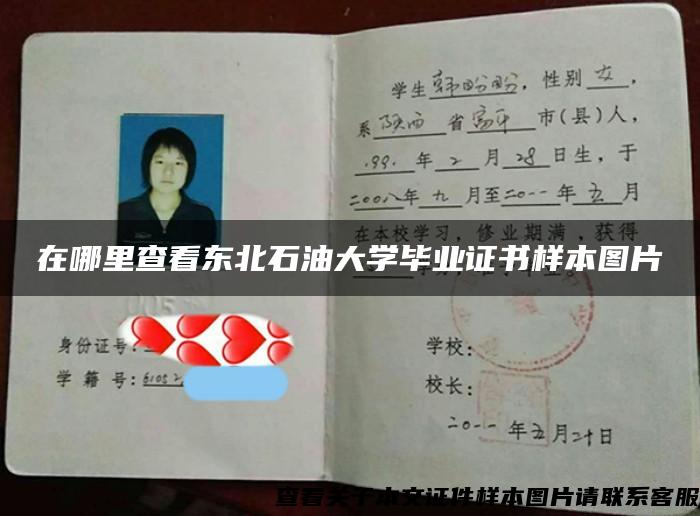 学生韩盼盼，性别女，
系陕西省富平市(县)人，
.99.年2月28日生，于
二00八年九月至二0一一年五月
在本校学习，修业期满，获得
在哪里查看东北石油大学毕业证书样本图片
身份证号:
学籍号:61052
学校:
校长:
二0一一年五月二十日
查看关于本文证件样本图片请联系客服